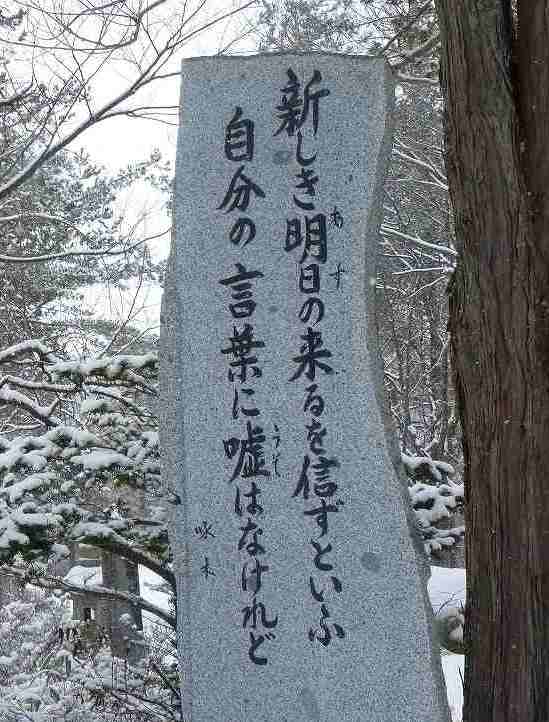 新しき明日の来るを信ずといふ
あす
自分の言葉に嘘はなけれど
うそ
啄木